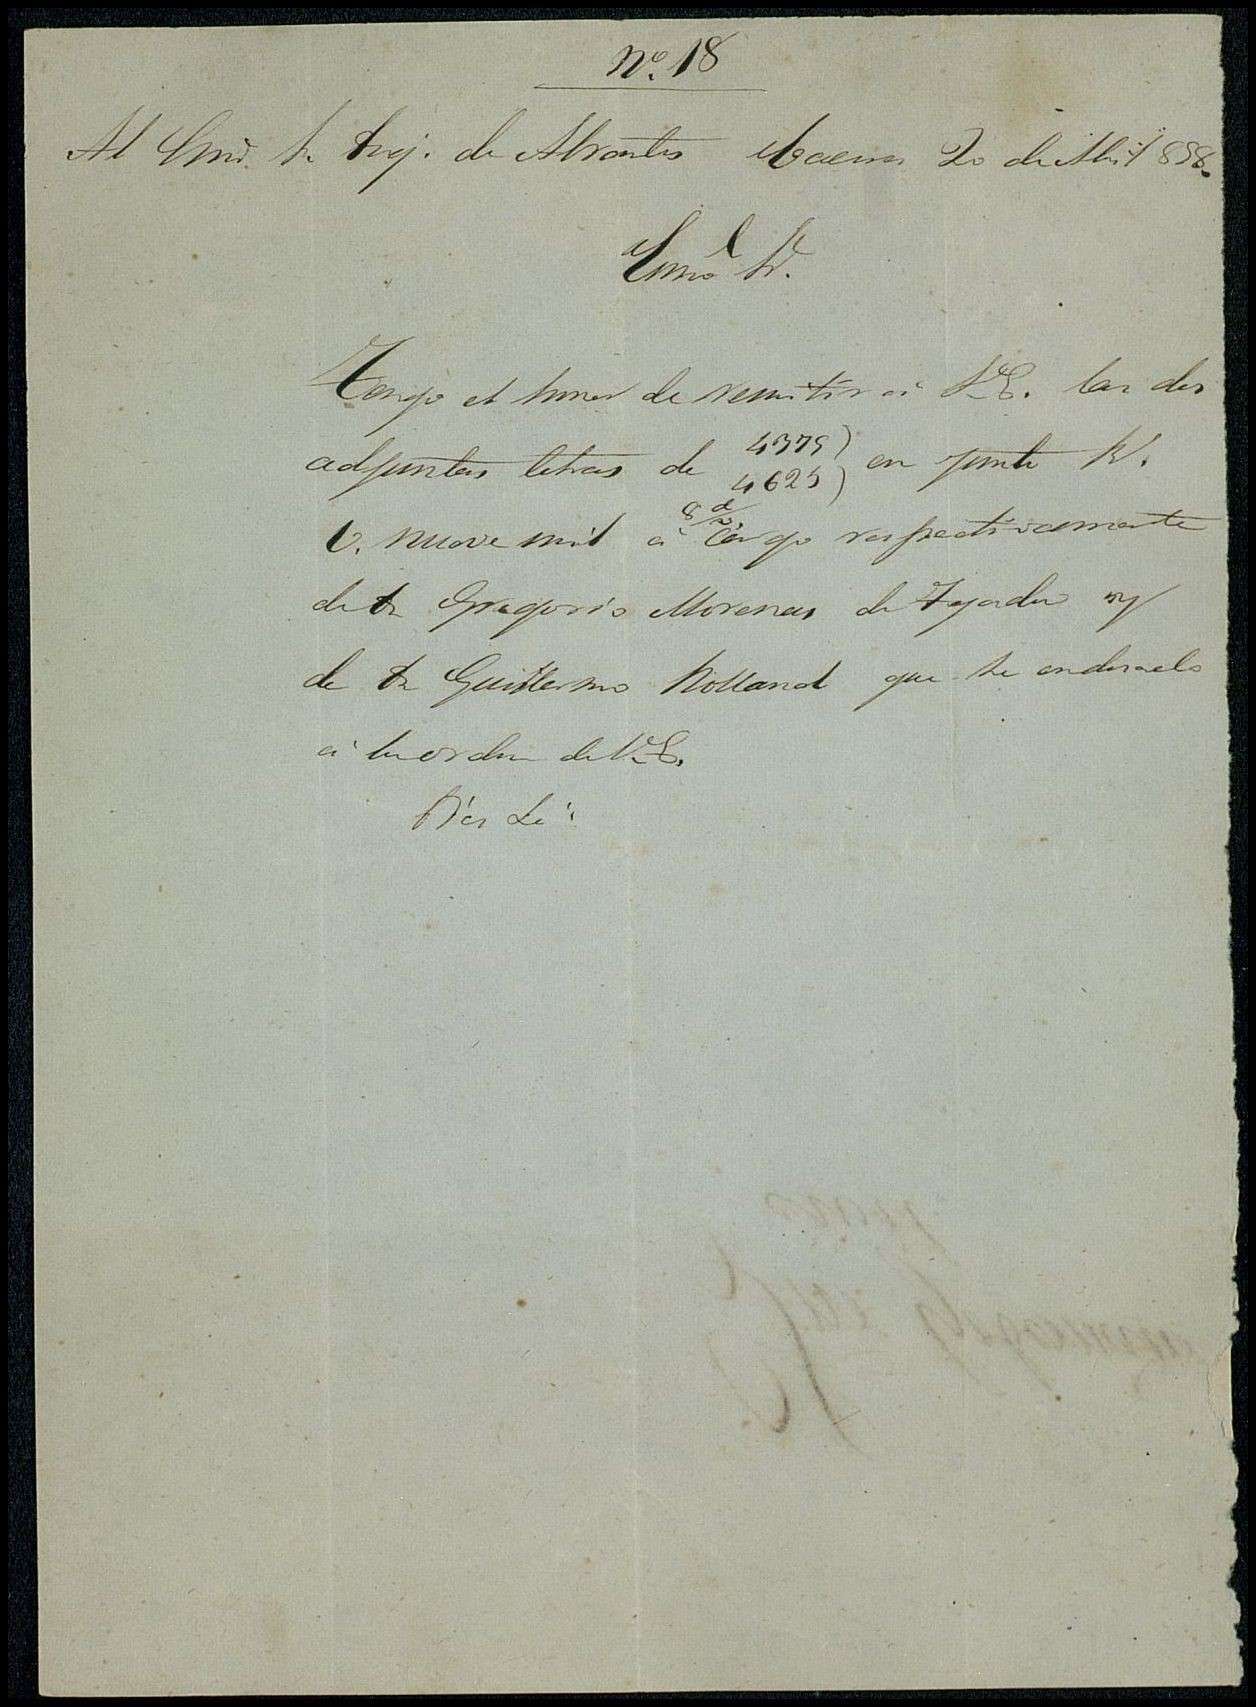 Nº. 18
Al Exmo. Sr. Duq. de Abrantes Baena 20 de Abril 858.
Exmo Sr.
Tengo el honor de remitir á V.E. las dos
adjuntas letras de 4375) en junto Rs.
4625)
8 d/v.
v. nueve mil á cargo respectivamente
de Dn Gregorio Morenas de Tejada y
de Dn Guillermo Rolland que he endosado
á la orden de V.E.
Dios &a